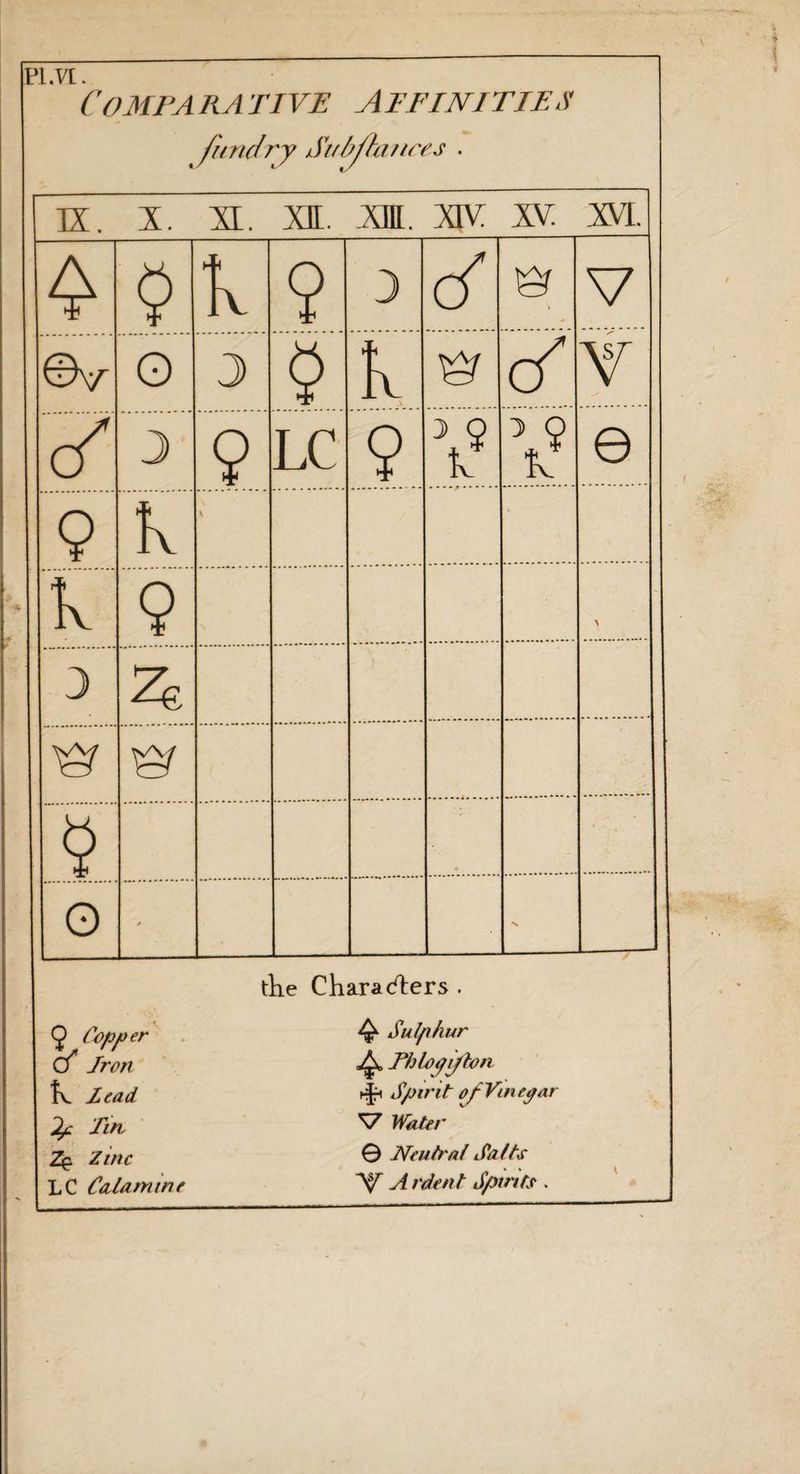 Pl.VI.
COMPARATIVE AFFINITIES
ſundry Subſtances .
IX. X. XI. XII. XIII. XIV. XV. XVI.
🜍 ☿ ♄ ♀ ☽ ♂ ♛ ▽
⊖v ☉ ☽ ☿ ♄ ♛ ♂ V S
♂ ☽ ♀ LC ♀ ☽ ♀ ♄ ☽ ♀ ♄ ⊖
♀ ♄
♄ ♀
☽ Z
♛ ♛
☿
☉
the Characters .
♀ Copper
♂ Iron
♄ Lead
♃ Tin
Z Zinc
LC Calamine
🜍 Sulphur
Phlogiſton
Spirit of Vinegar
▽ Water
⊖ Neutral Salts
V Ardent Spirits .